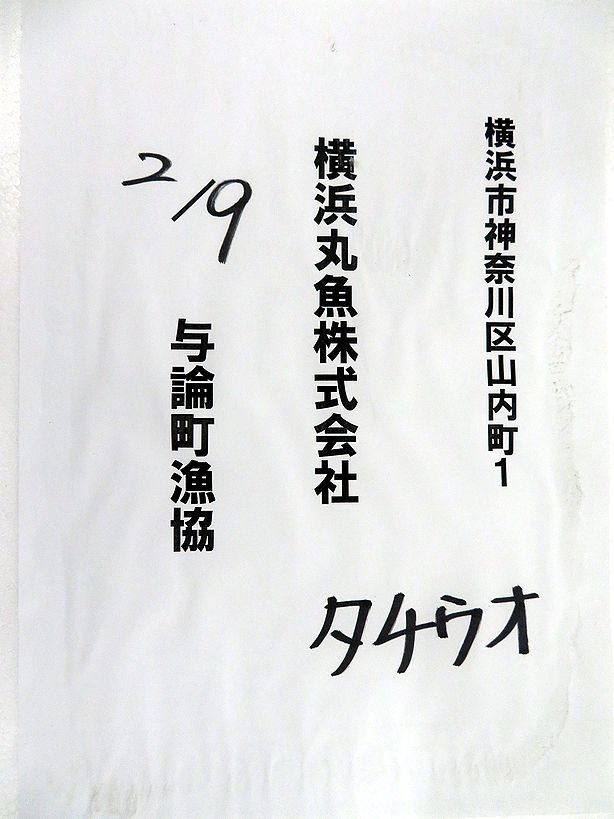 横浜市神奈川区山内町1
横浜丸魚株式会社
2/9
与論町漁協
タチウオ